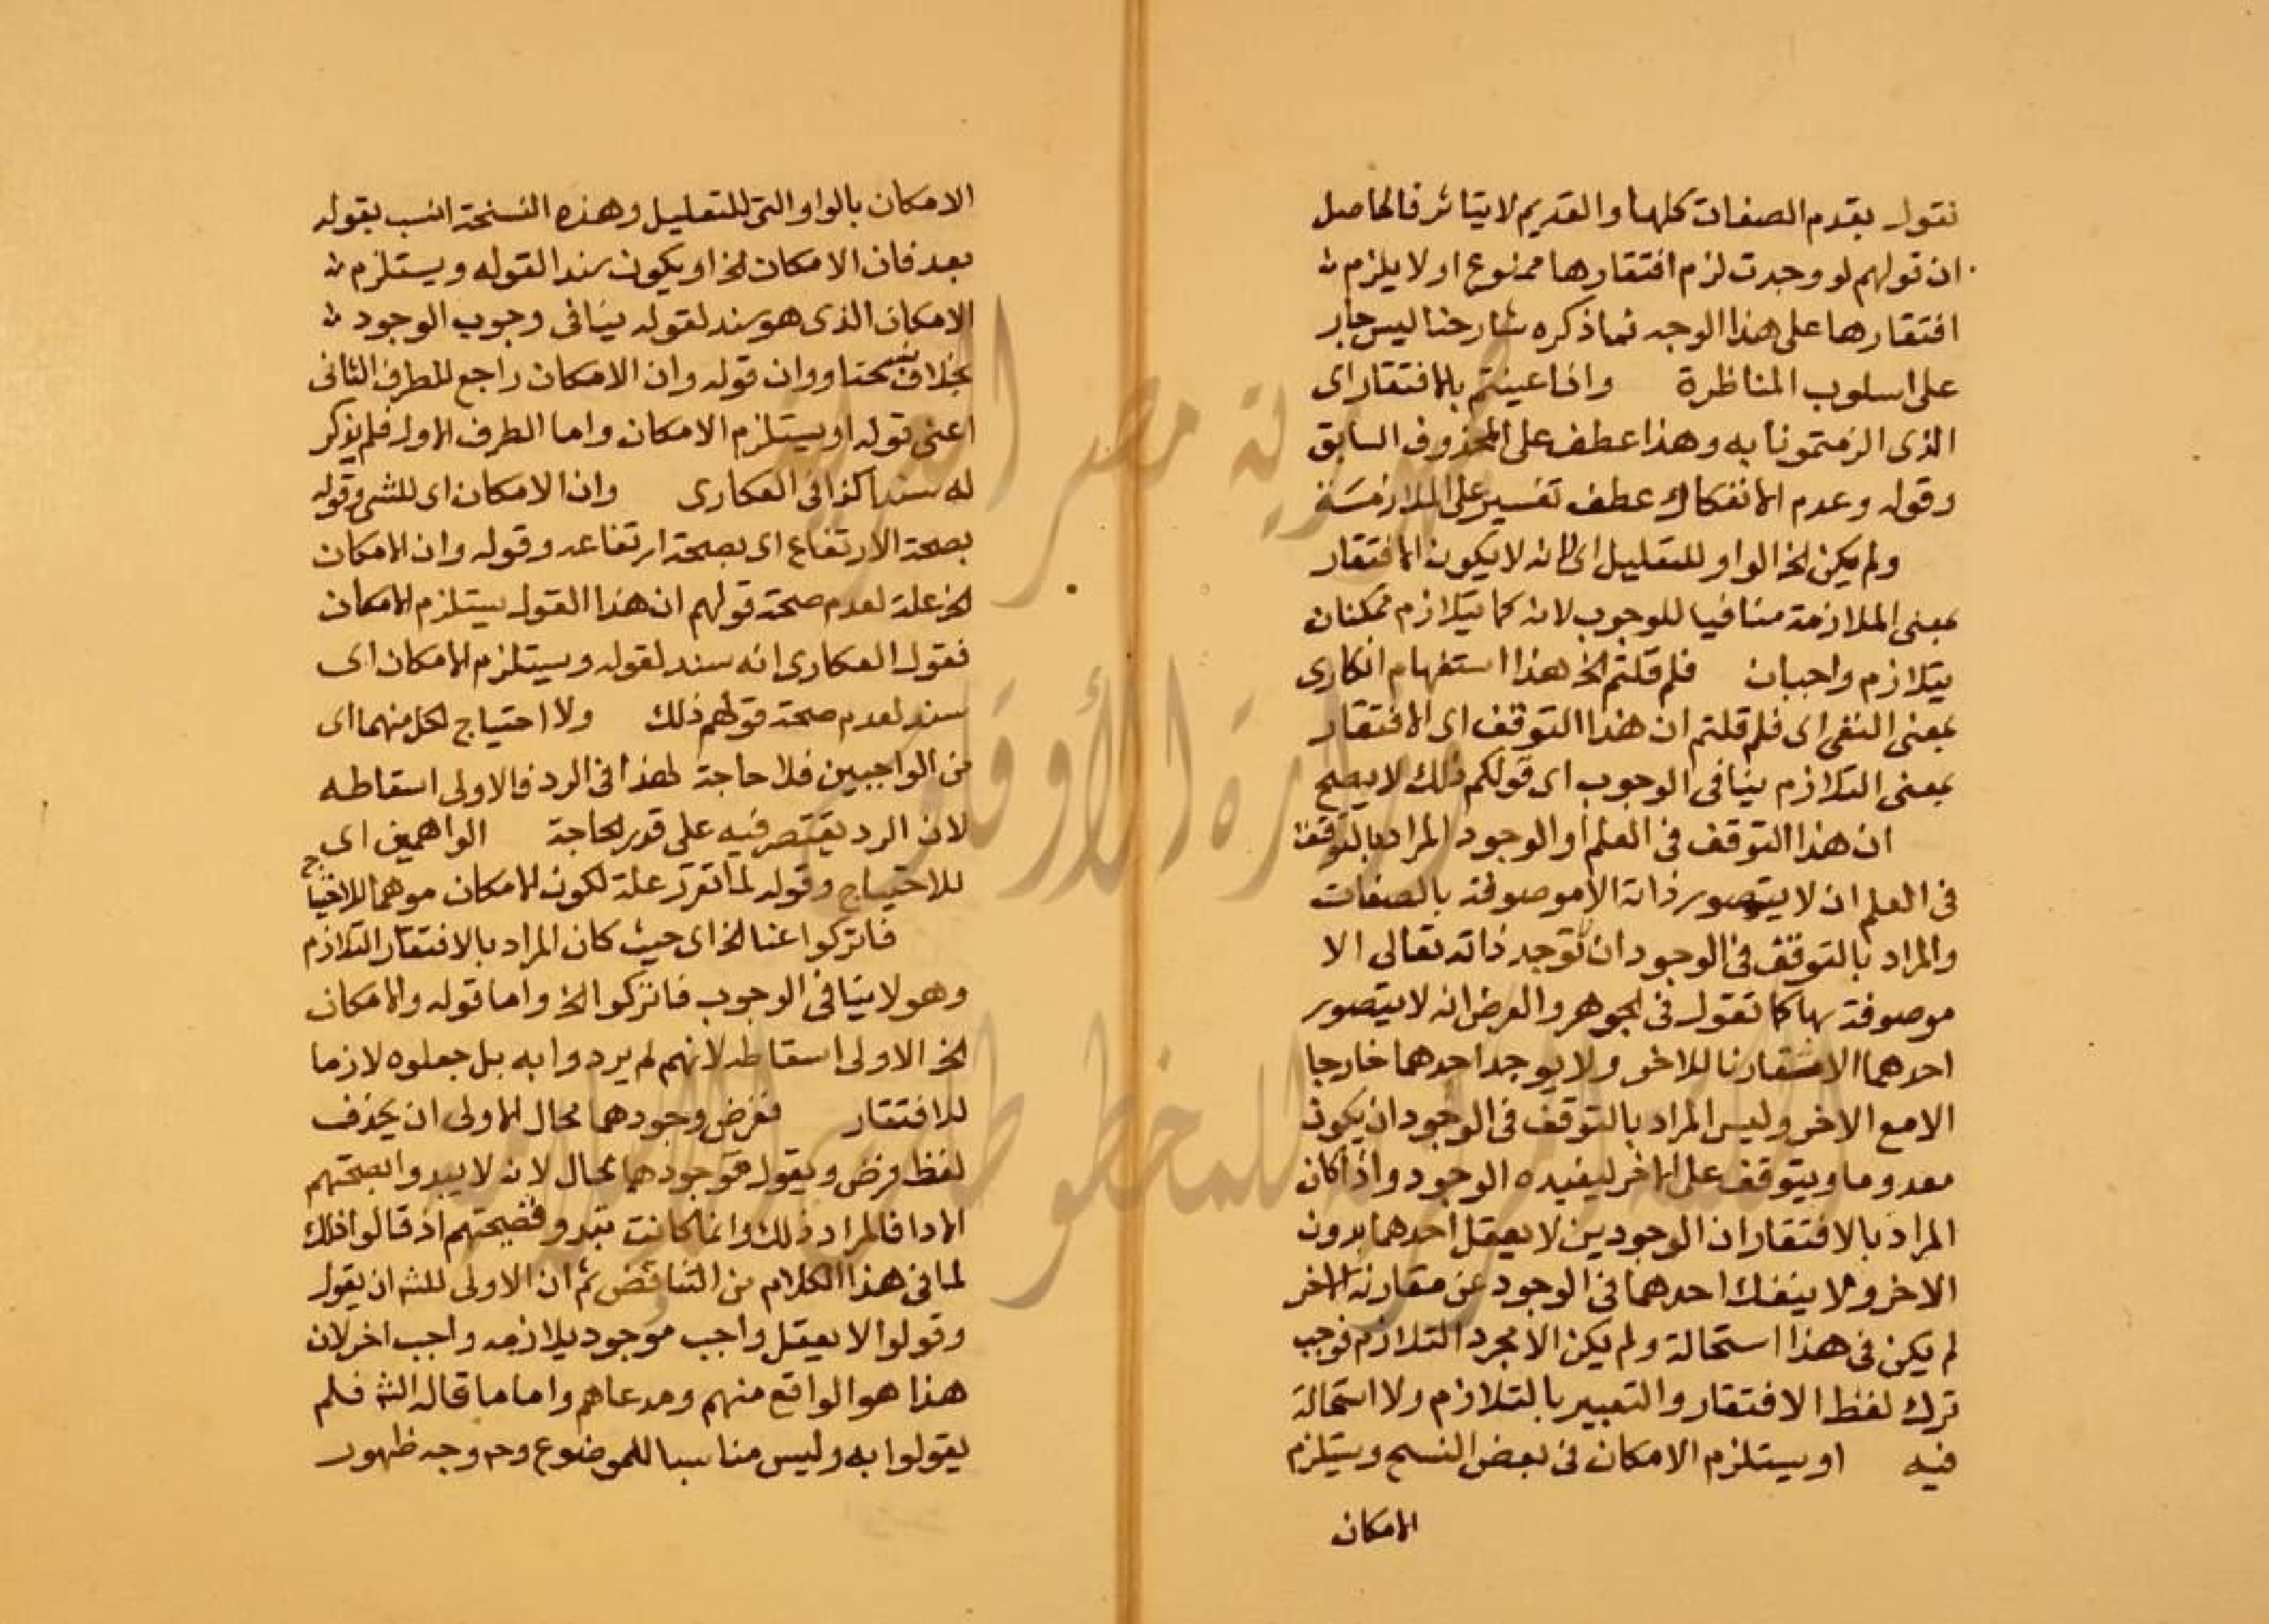 نقول بقدم الصفات كلها والقديم لا يتأثر فالحاصل
ان قولهم لو وجدت لزم افتقارها ممنوع او لا يلزم
افتقارها على هذا الوجه فما ذكره شارحنا ليس جار
على اسلوب المناظرة وان عينتم بالافتقار اى
الذى الزمتمونا به وهذا عطف على المحذوف السابق
وقوله وعدم الانفكاك عطف تفسير على الملازمة
ولم يكن الخ الواو للتعليل اى لانه لا يكون الافتقار
بمعنى الملازمة منافيا للوجوب لانه كما يتلازم ممكنان
يتلازم واجبان فلم قلتم الخ هذا استفهام انكارى
بمعنى النفى اى فلم قلتم ان هذا التوقف اى الافتقار
بمعنى التلازم ينافى الوجوب اى قولكم ذلك لا يصح
ان هذا التوقف فى العلم او الوجود المراد بالتوقف
فى العلم ان لا يتصور ذاته الا موصوفة بالصفات
والمراد بالتوقف فى الوجود ان توجد ذاته تعالى الا
موصوفة بها كما تقول فى الجوهر والعرض انه لا يتصور
احدهما الا مقارنا للاخر ولا يوجد احدهما خارجا
الا مع الاخر وليس المراد بالتوقف فى الوجود ان يكون
معدوما ويتوقف على الاخر ليفيده الوجود واذا كان
المراد بالافتقار ان الوجوديين لا يعقل احدهما بدون
الاخر ولا ينفك احدهما فى الوجود عن مقارنة الاخر
لم يكن فى هذا استحالة ولم يكن الا مجرد التلازم فوجب
ترك لفظ الافتقار والتعبير بالتلازم ولا استحالة
فيه او يستلزم الامكان فى بعض النسخ ويستلزم
الامكان
الامكان بالواو التى للتعليل وهذه النسخة انسب بقوله
بعد فان الامكان الخ او يكون سندا لقوله ويستلزم
الامكان الذى هو سند لقوله ينافى وجوب الوجود
بخلاف نسخة او وان قوله وان الامكان راجع للطرف الثانى
اعنى قوله او يستلزم الامكان واما الطرف الاول فلم يذكر
له سندا كذا فى العكارى وان الامكان اى للشى وقوله
بصحة الارتفاع اى بصحة ارتفاعه وقوله وان الامكان
الخ علة لعدم صحة قولهم ان هذا القول يستلزم الامكان
فقول العكارى انه سند لقوله ويستلزم الامكان اى
سند لعدم صحة قولهم ذلك ولا احتياج لكل منهما اى
من الواجبين فلا حاجة لهذا فى الرد فالاولى اسقاطه
لان الرد يقتصر فيه على قدر الحاجة الواهمين اى
للاحتياج وقوله لما تقرر علة لكون الامكان موهما للاحتياج
فاتركوا عنا الخ اى حيث كان المراد بالافتقار التلازم
وهو لا ينافى الوجوب فاتركوا الخ واما قوله والامكان
الخ الاولى اسقاطه لانهم لم يردوا به بل جعلوه لازما
للافتقار ففرض وجودهما محال الاولى ان يحذف
لفظ فرض ويقول فوجودهما محال لانه لا يبدوا بصحتهم
الا اذا قالمراد ذلك وانما كانت تبدو فضيحتهم اذ قالوا ذلك
لما فى هذا الكلام من التناقض ثم ان الاولى للشه ان يقول
وقولوا لا يعقل واجب موجود يلازمه واجب اخر لان
هذا هو الواقع منهم ومدعاهم واما ما قاله الشه فلم
يقولوا به وليس مناسبا للموضوع وح وجه ظهور